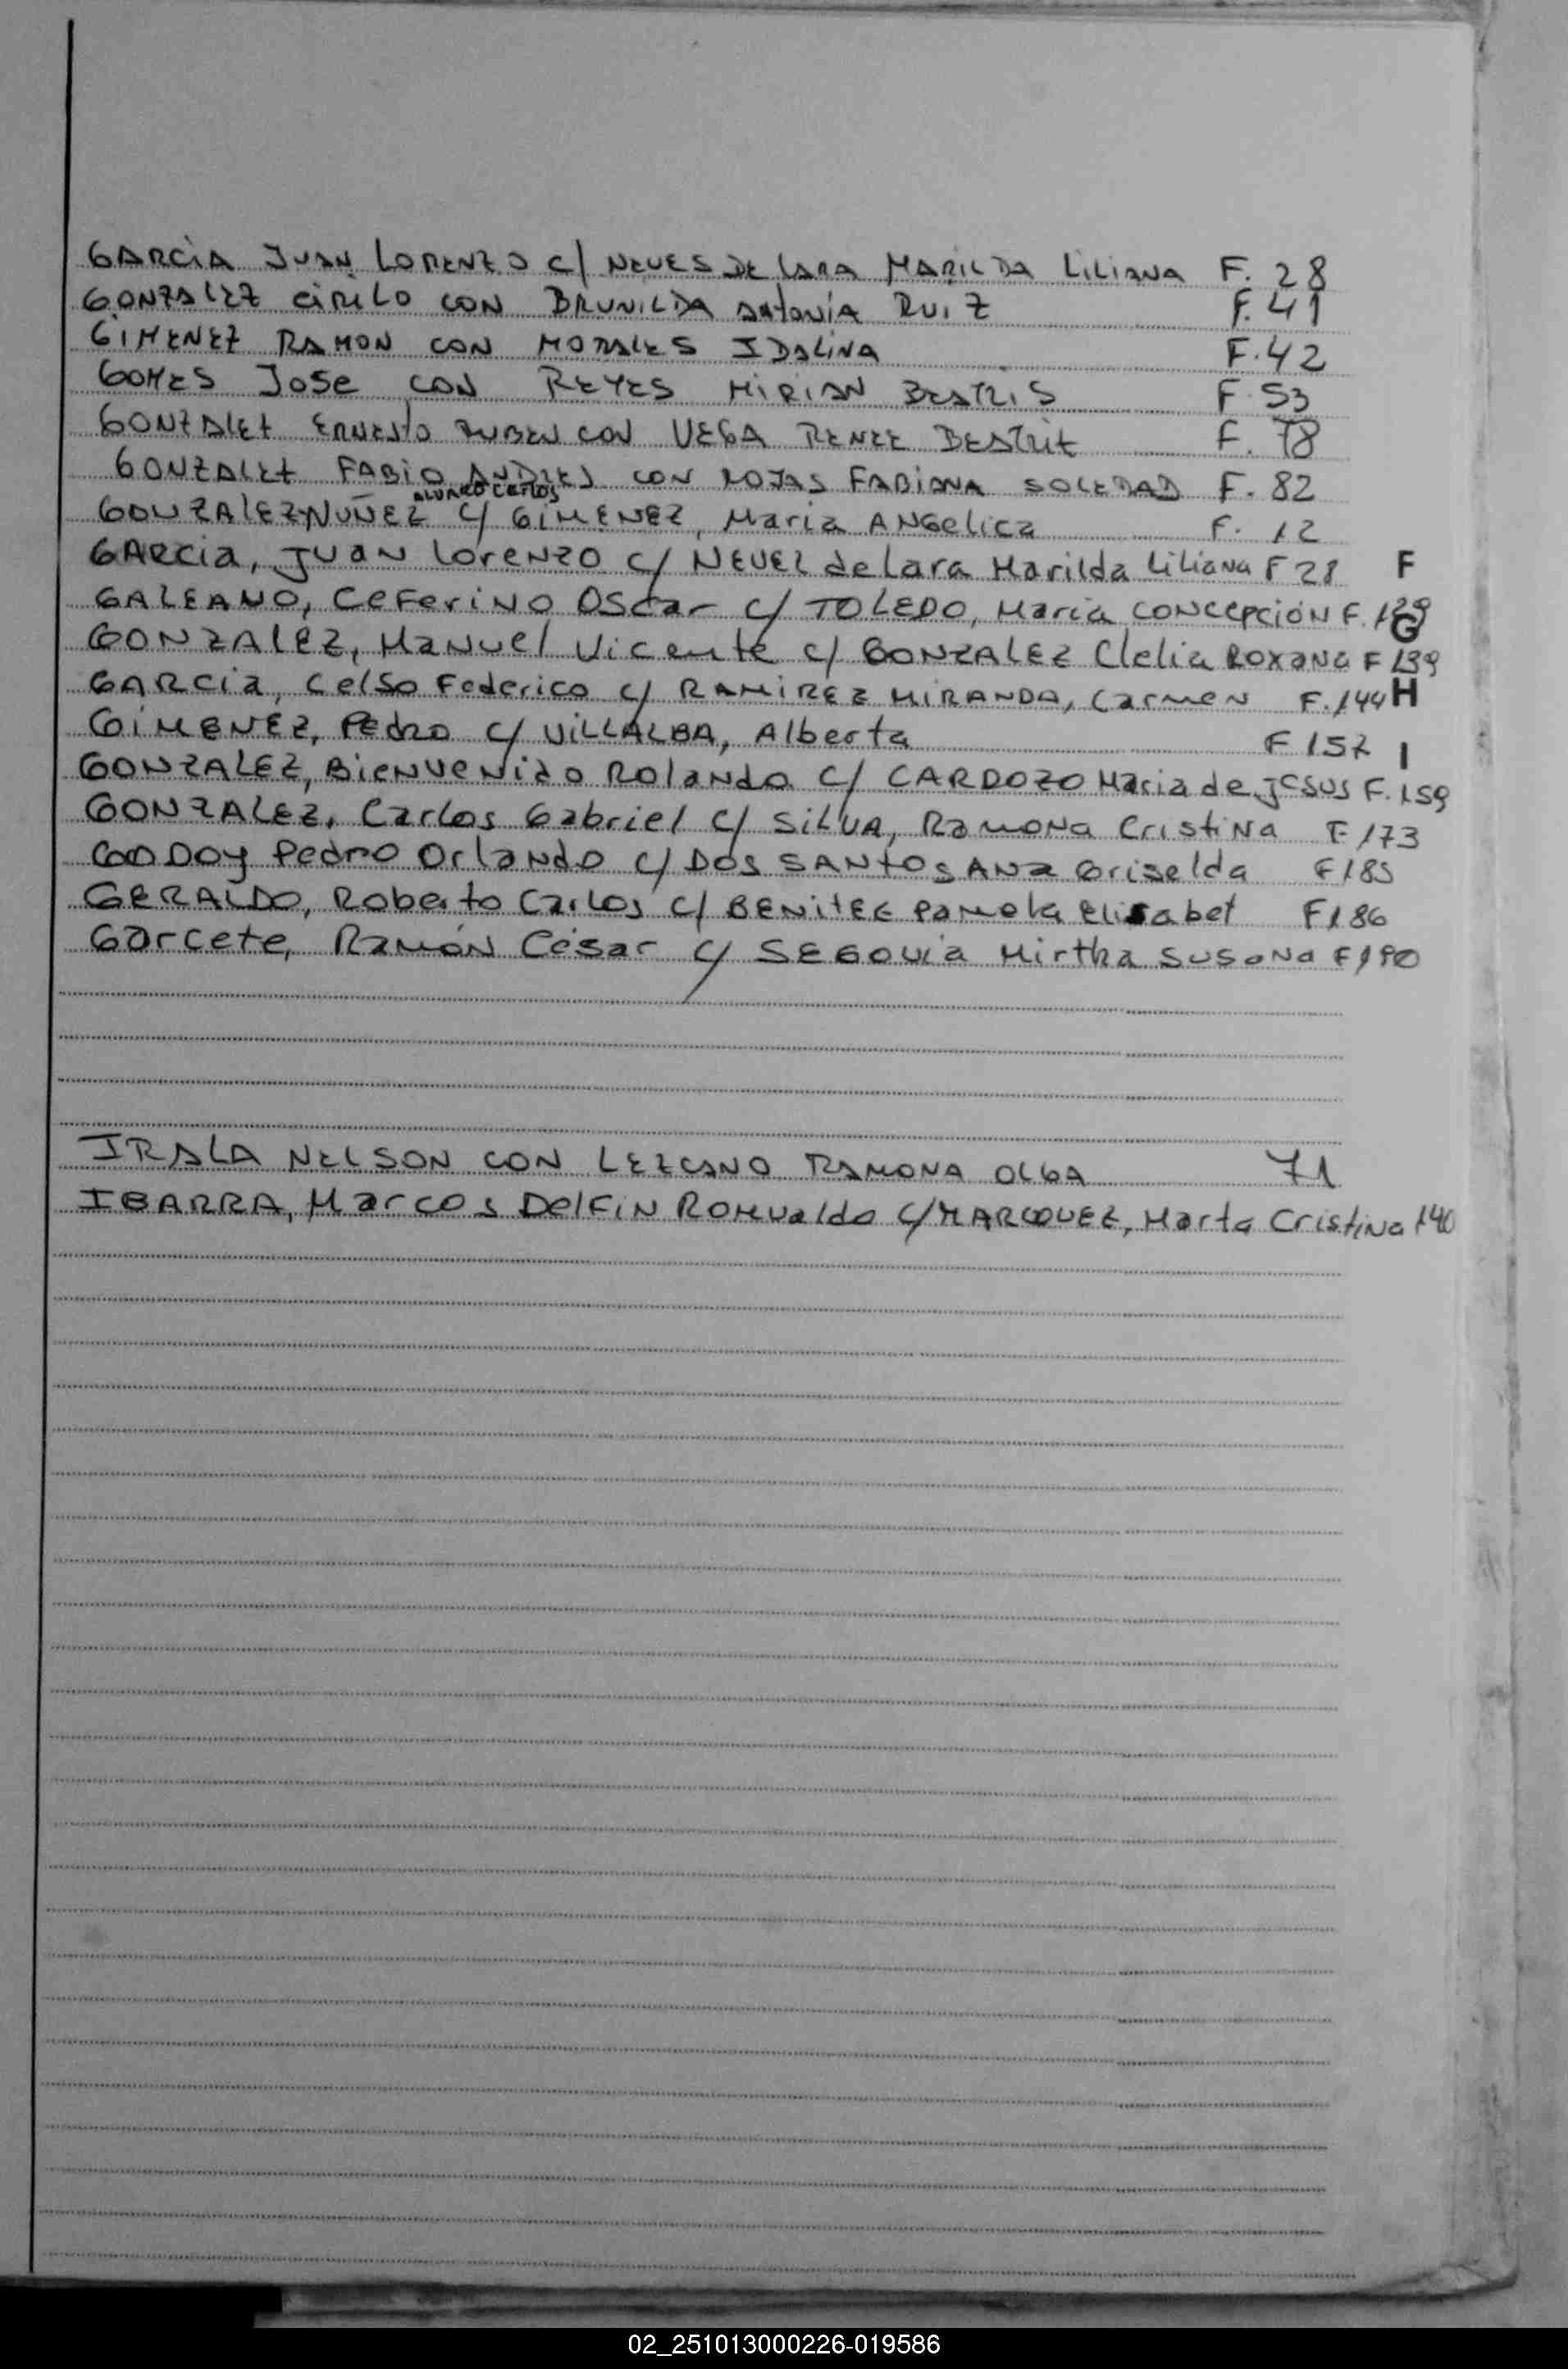 GARCÍA JUAN LORENZO C/ NEVES DE LARA MARILDA LILIANA F. 28
GONZALEZ CIRILO CON BRUNILDA ANTONIA RUIZ F. 41
GIMENEZ RAMON CON MORALES IDALINA F. 42
GOMES JOSE CON REYES MIRIAN BEATRIS F. 53
GONZALEZ ERNESTO RUBEN CON VEGA RENEE BEATRIZ F. 78
GONZALEZ FABIO ANDRES CON ROJAS FABIANA SOLEDAD F. 82
ALVARO CARLOS
GONZALEZ NUÑEZ C/ GIMENEZ, Maria ANGELICA F. 12
GARCIA, JUAN LORENZO C/ NEVEZ de Lara Marilda Liliana F 28 F
GALEANO, CEFERINO OSCAR C/ TOLEDO, Maria CONCEPCIÓN F.
G
GONZALEZ, Manuel Vicente C/ GONZALEZ Clelia ROXANA F 139
GARCIA, Celso Federico C/ RAMIREZ MIRANDA, Carmen F. 144 H
GIMENEZ, Pedro C/ VILLALBA, Alberta F 157
I
GONZALEZ, Bienvenido Rolando C/ CARDOZO Maria de Jesus F. 159
GONZALEZ, Carlos Gabriel C/ SILVA, Ramona Cristina F 173
GODOY Pedro Orlando C/ DOS SANTOS ANA Griselda F 185
GERALDO, Roberto Carlos C/ BENITEZ Pamela Elisabet F 186
Garcete, Ramón César C/ SEGOVIA Mirtha Susana F 190
IRALA NELSON CON LEZCANO RAMONA OLGA 71
IBARRA, Marcos Delfin Romualdo C/ MARQUEZ, Marta Cristina 140
02_251013000226-019586